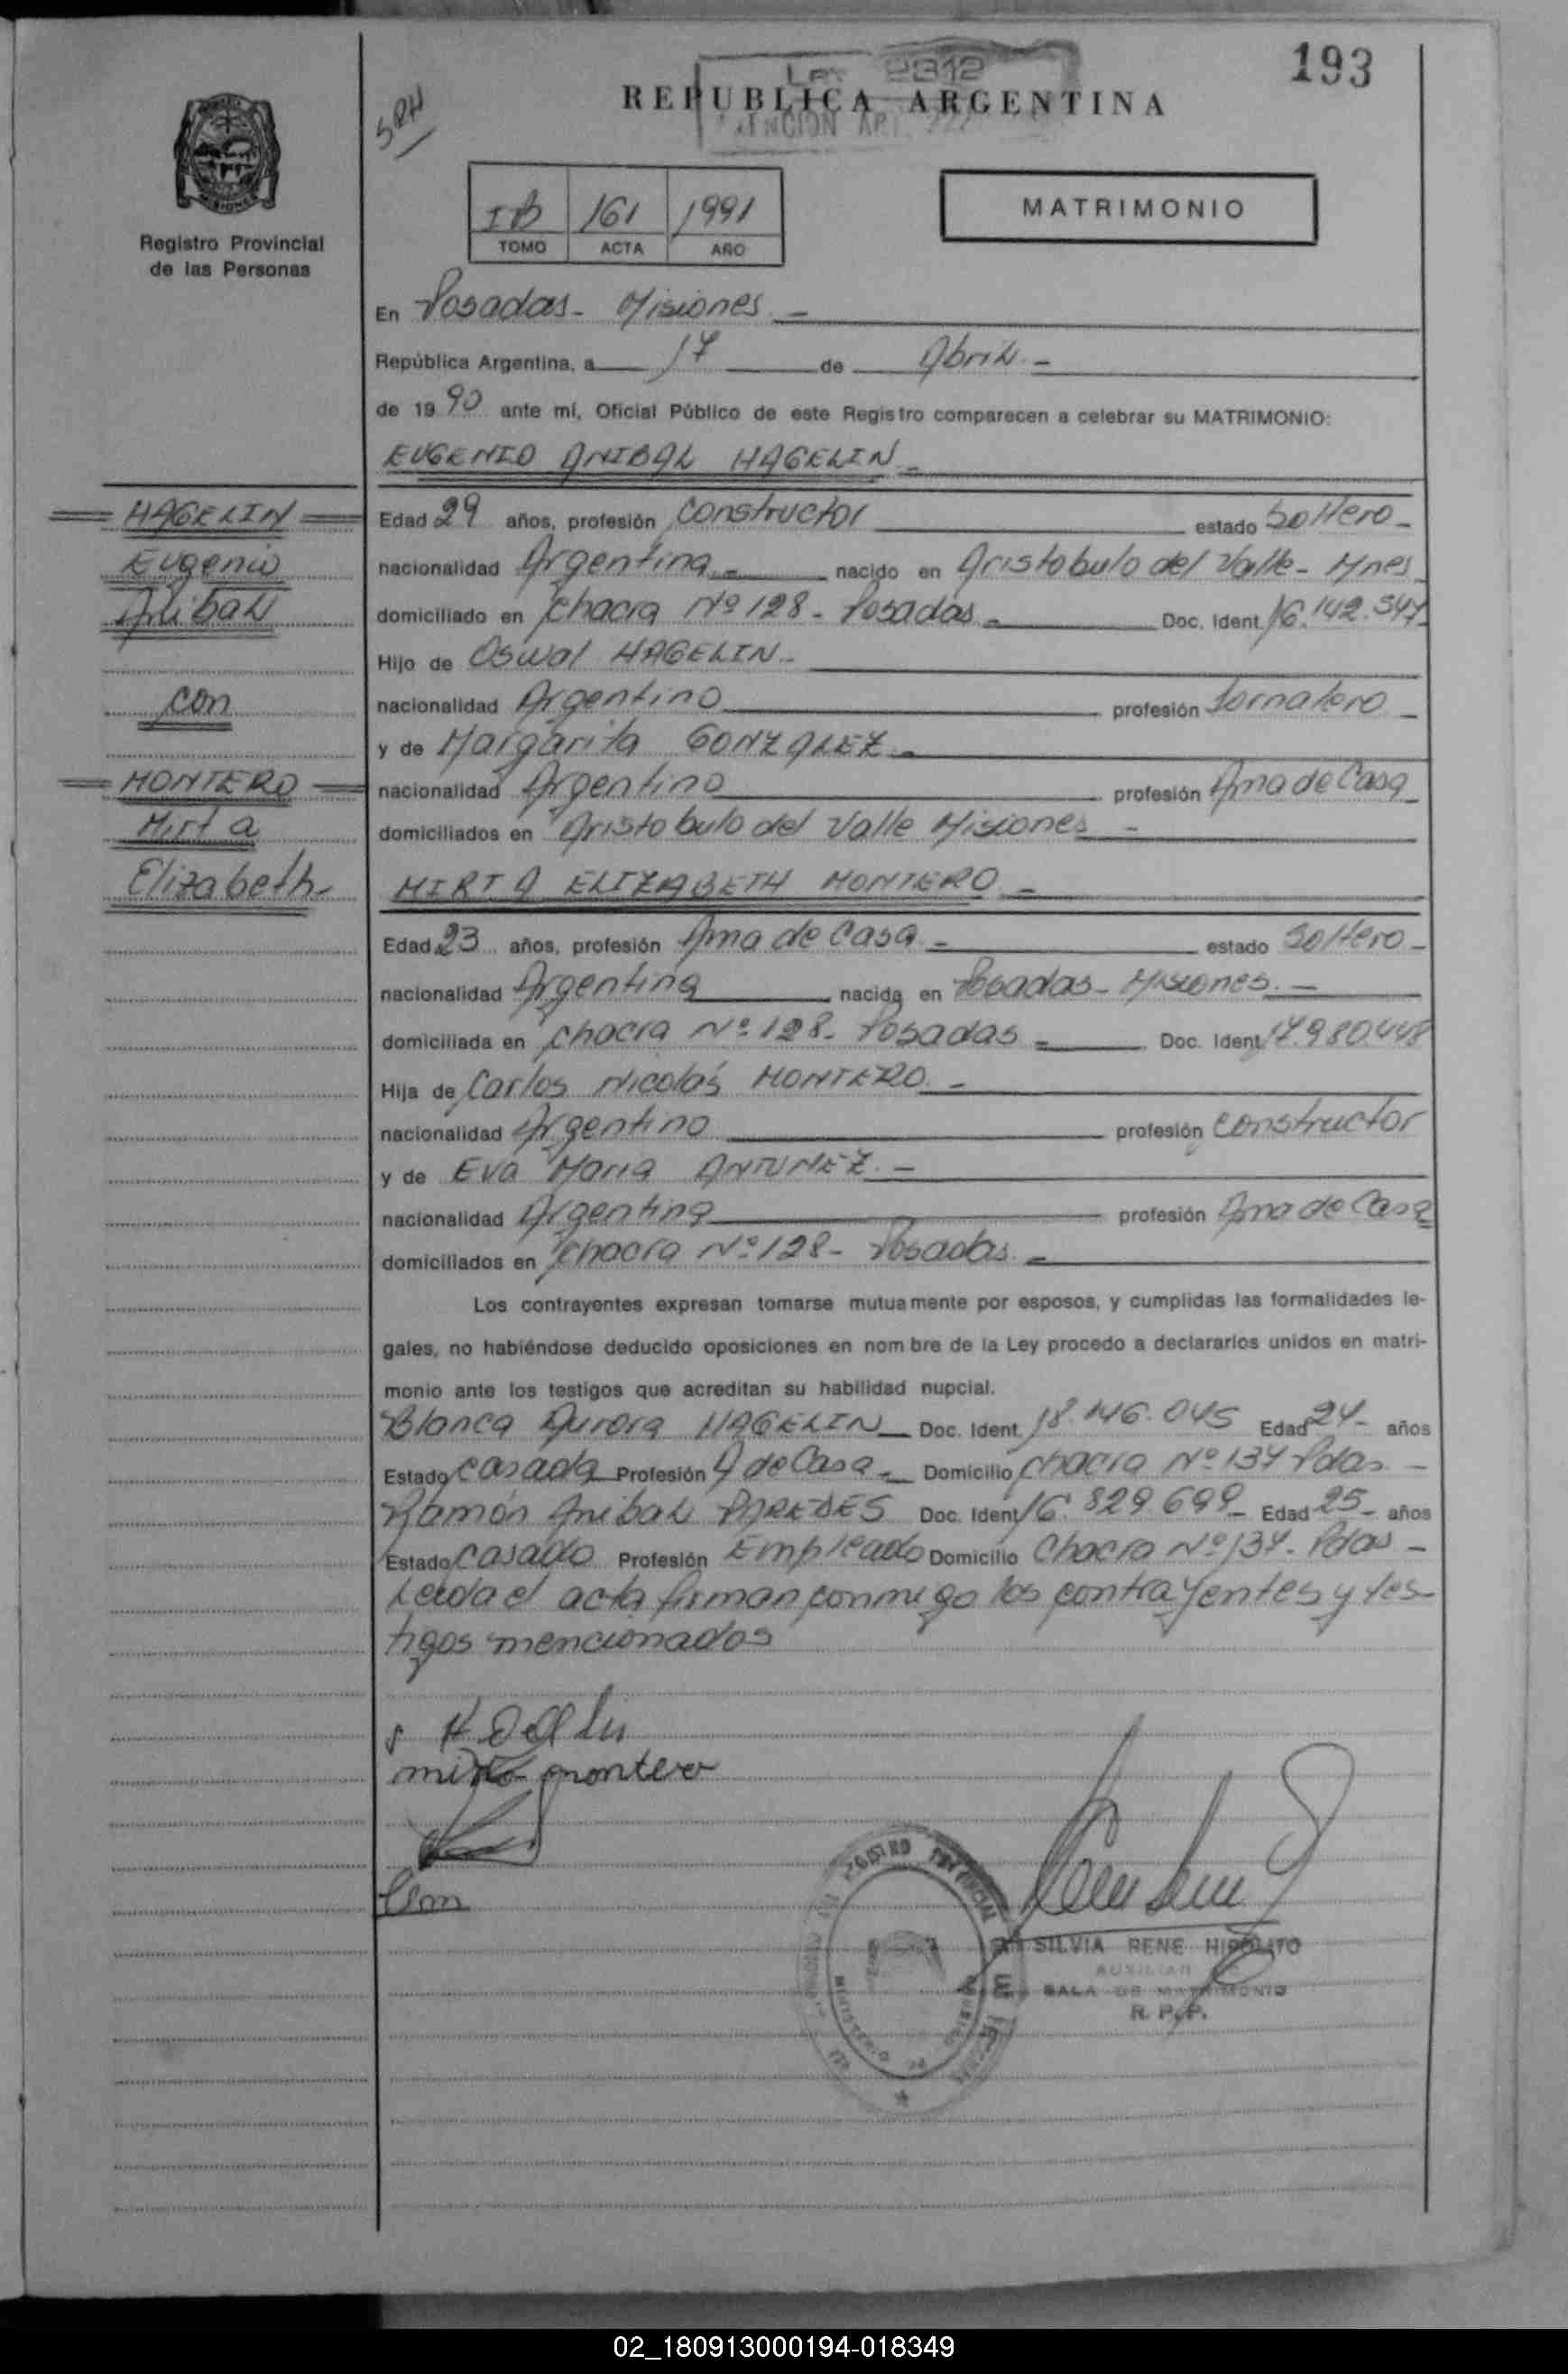 193
LEY 2312
REPUBLICA ARGENTINA
SRH
Registro Provincial
de las Personas
IB 161 1991
TOMO ACTA AÑO
MATRIMONIO
En Posadas - Misiones -
República Argentina, a 17 de Abril -
de 1990 ante mí, Oficial Público de este Registro comparecen a celebrar su MATRIMONIO:
EUGENIO ANIBAL HAGELIN -
HAGELIN
Eugenio
Anibal
con
MONTERO
Mirta
Elizabeth
Edad 29 años, profesión Constructor estado Soltero -
nacionalidad Argentina - nacido en Aristobulo del Valle - Mnes
domiciliado en Chacra Nº 128 - Posadas - Doc. Ident. 16.142.547
Hijo de Oswal HAGELIN -
nacionalidad Argentino profesión Jornalero -
y de Margarita GONZALEZ -
nacionalidad Argentino profesión Ama de Casa
domiciliados en Aristobulo del Valle Misiones -
MIRTA ELIZABETH MONTERO -
Edad 23 años, profesión Ama de Casa - estado Soltero -
nacionalidad Argentina nacida en Posadas - Misiones -
domiciliada en Chacra Nº 128 - Posadas - Doc. Ident. 17.980.448
Hija de Carlos Nicolás MONTERO -
nacionalidad Argentino profesión constructor
y de Eva Maria ANTUNEZ -
nacionalidad Argentina profesión Ama de Casa
domiciliados en Chacra Nº 128 - Posadas -
Los contrayentes expresan tomarse mutuamente por esposos, y cumplidas las formalidades le-
gales, no habiéndose deducido oposiciones en nombre de la Ley procedo a declararlos unidos en matri-
monio ante los testigos que acreditan su habilidad nupcial.
Blanca Aurora HAGELIN Doc. Ident. 18.146.045 Edad 24 - años
Estado Casada Profesión A de Casa - Domicilio Chacra Nº 134 Pdas -
Ramón Anibal PAREDES Doc. Ident. 16.829.699 - Edad 25 - años
Estado Casado Profesión Empleado Domicilio Chacra Nº 134 - Pdas -
Leida el acta firman conmigo los contrayentes y tes-
tigos mencionados
mirta montero
SILVIA RENE HIPOLITO
AUXILIAR
SALA DE MATRIMONIO
R. P. P.
02_180913000194-018349